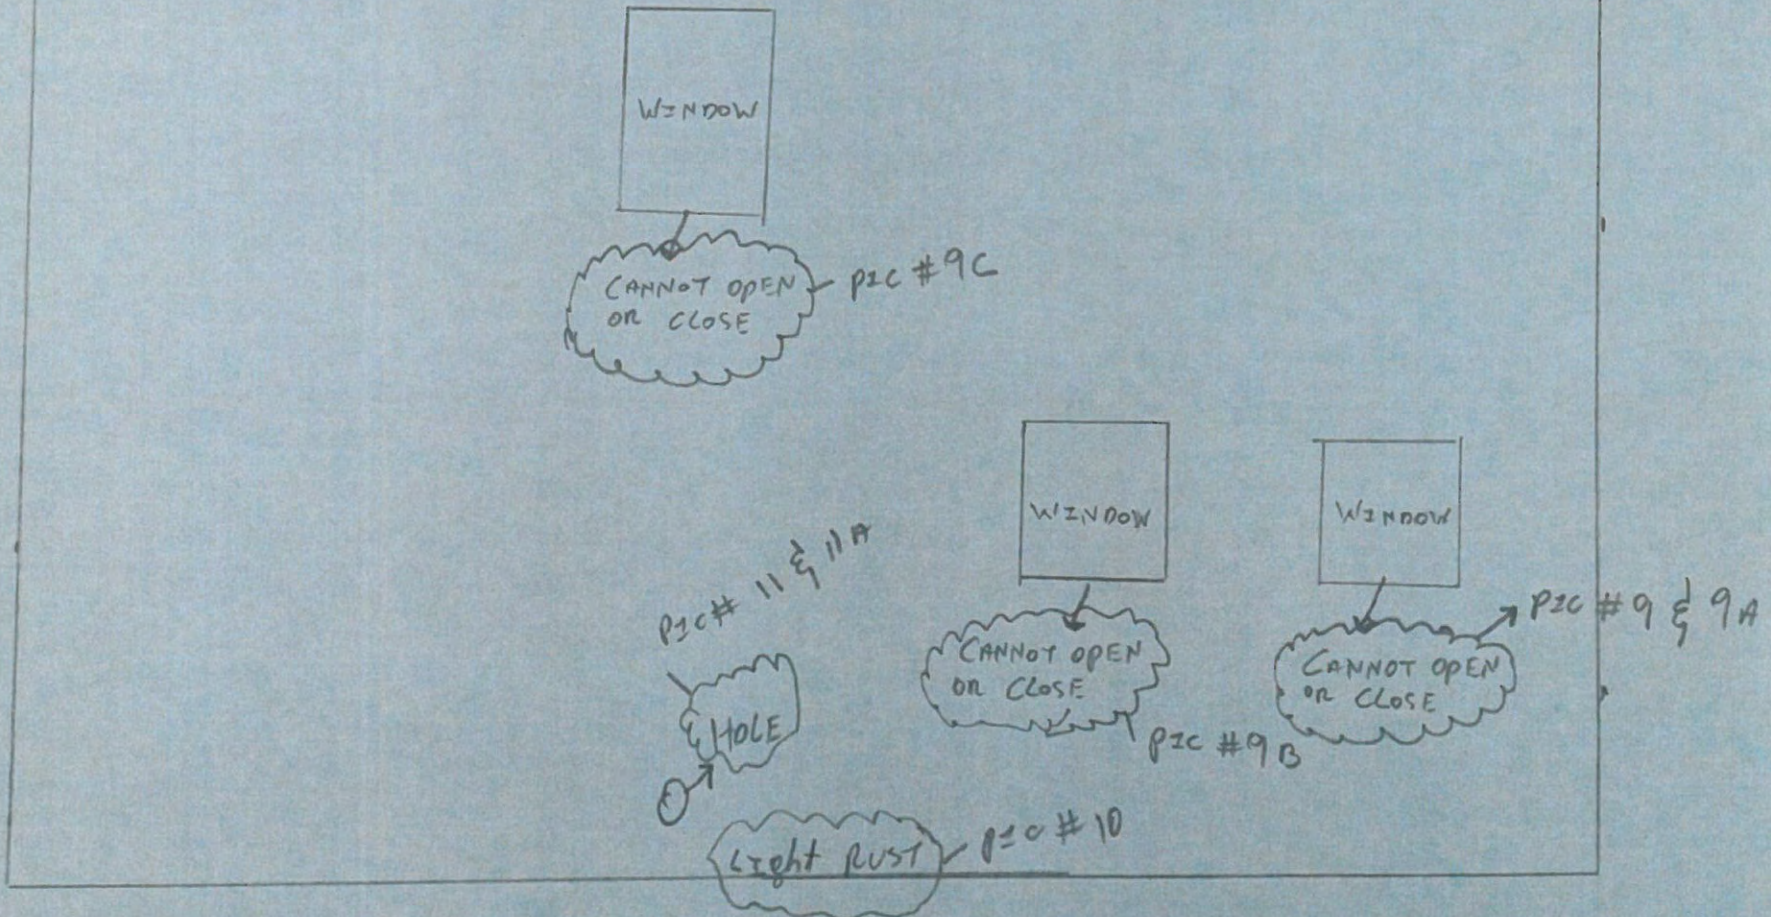 WINDOW
CANNOT OPEN
OR CLOSE
PIC #9C
WINDOW
WINDOW
PIC # 11 & 11A
CANNOT OPEN
OR CLOSE
PIC #9B
CANNOT OPEN
OR CLOSE
PIC #9 & 9A
HOLE
LIght RUST
PIC #10